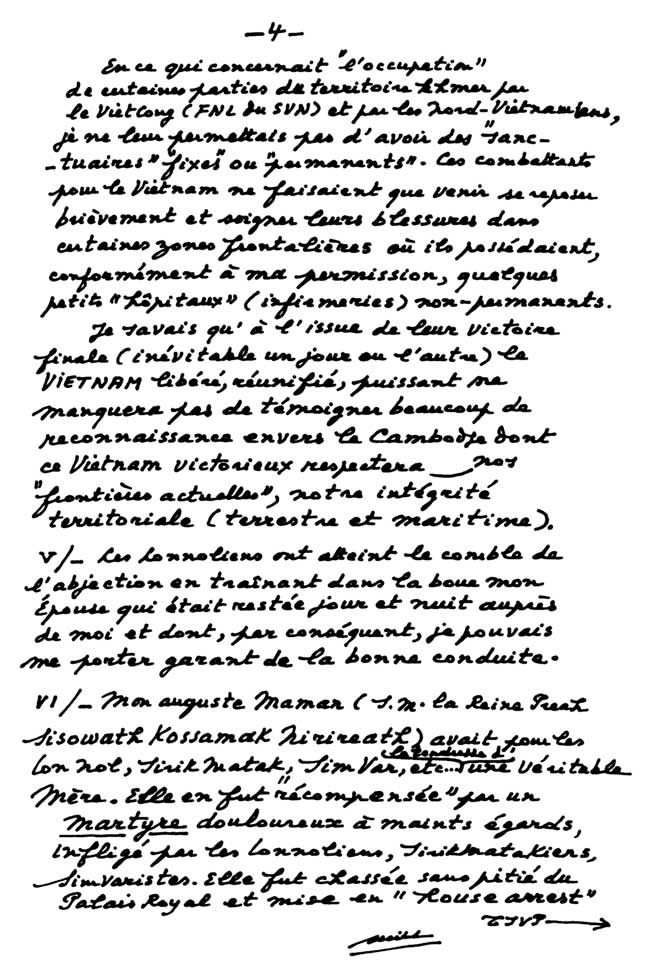 —4—
En ce qui concernait "l'occupation"
de certaines parties du territoire khmer par
le VietCong (FNL du SVN) et par les Nord-Vietnamiens,
je ne leur permettais pas d'avoir des "sanc-
-tuaires" "fixes" ou "permanents". Ces combattants
pour le Vietnam ne faisaient que venir se reposer
brièvement et soigner leurs blessures dans
certaines zones frontalières où ils possédaient,
conformément à ma permission, quelques
petits "hôpitaux" (infirmeries) non-permanents.
Je savais qu'à l'issue de leur victoire
finale (inévitable un jour ou l'autre) le
VIETNAM libéré, réunifié, puissant ne
manquera pas de témoigner beaucoup de
reconnaissance envers le Cambodge dont
ce Viêtnam victorieux respectera nos
"frontières actuelles", notre intégrité
territoriale (terrestre et maritime).
V/- Les Lonnoliens ont atteint le comble de
l'abjection en traînant dans la boue mon
Épouse qui était restée jour et nuit auprès
de moi et dont, par conséquent, je pouvais
me porter garant de la bonne conduite.
VI/- Mon auguste Maman (S.M. la Reine Preah
Sisowath Kossamak Nirireath) avait pour les
Lon Nol, Sirik Matak, Sim Var, etc... la tendresse d'une véritable
Mère. Elle en fut "récompensée" par un
martyre douloureux à maints égards,
infligé par les Lonnoliens, Sirikmatakiens,
Simvaristes. Elle fut chassée sans pitié du
Palais Royal et mise en "house arrest"
TSVP→